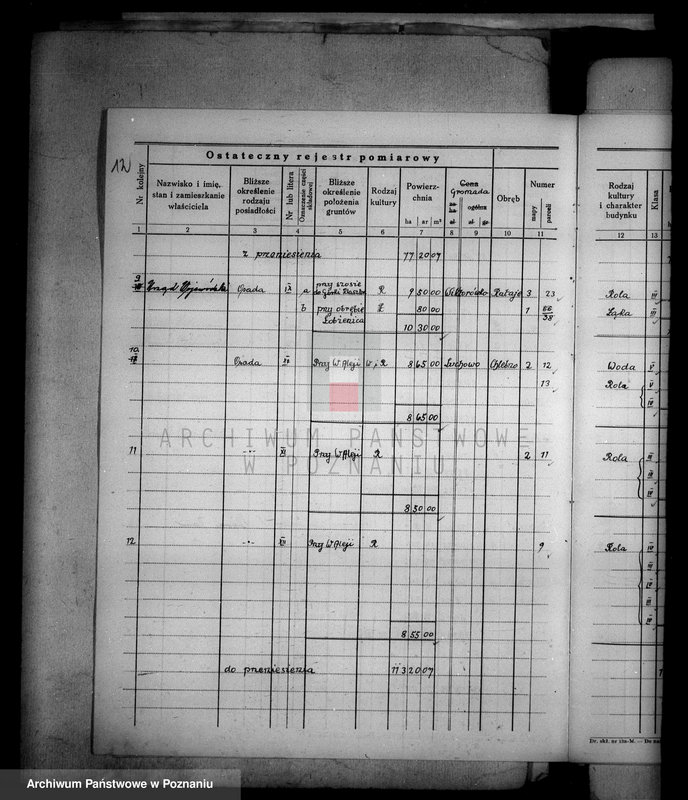 12
Ostateczny rejestr pomiarowy
Nr kolejny
Nazwisko i imię, stan i zamieszkanie właściciela
Bliższe określenie rodzaju posiadłości
Nr lub litera
Oznaczenie części składowej
Bliższe określenie położenia gruntów
Rodzaj kultury
Powierzchnia
ha ar m²
Cena
Gromada
ogólna
zł gr
Obręb
Numer
mapy parceli
Rodzaj kultury i charakter budynku
Klasa
1 2 3 4 5 6 7 8 9 10 11 12 13
z przeniesienia 77 20 07
9 Urząd Wojewódzki Osada IX a przy szosie R 9 50 00 Wiktorówko Rataje 3 23 Rola III
b przy obrębie Ł 80 00 1 Łąka III
Łobżenica
10 30 00
10 Osada Przy W. Aleji W, R 8 65 00 Luchowo 2 12 Woda V
13 Rola V
IV
8 65 00
11 -"- XI Przy W. Aleji R 2 11 Rola III
8 50 00
12 -"- XII Przy W. Aleji R 9 Rola IV
8 55 00
do przeniesienia 113 20 07
ARCHIWUM PAŃSTWOWE
W POZNANIU
Archiwum Państwowe w Poznaniu